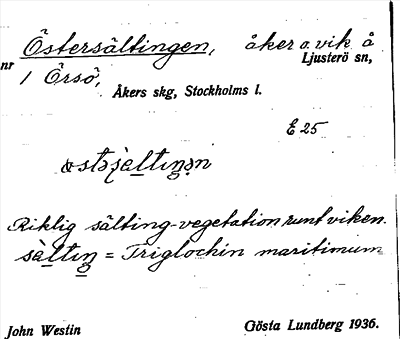 Östersältingen, åker o. vik å
nr 1 Örsö, Ljusterö sn,
Åkers skg, Stockholms l.
E 25
Riklig sälting-vegetation runt viken.
sàltıŋ = Triglochin maritimum
John Westin Gösta Lundberg 1936.